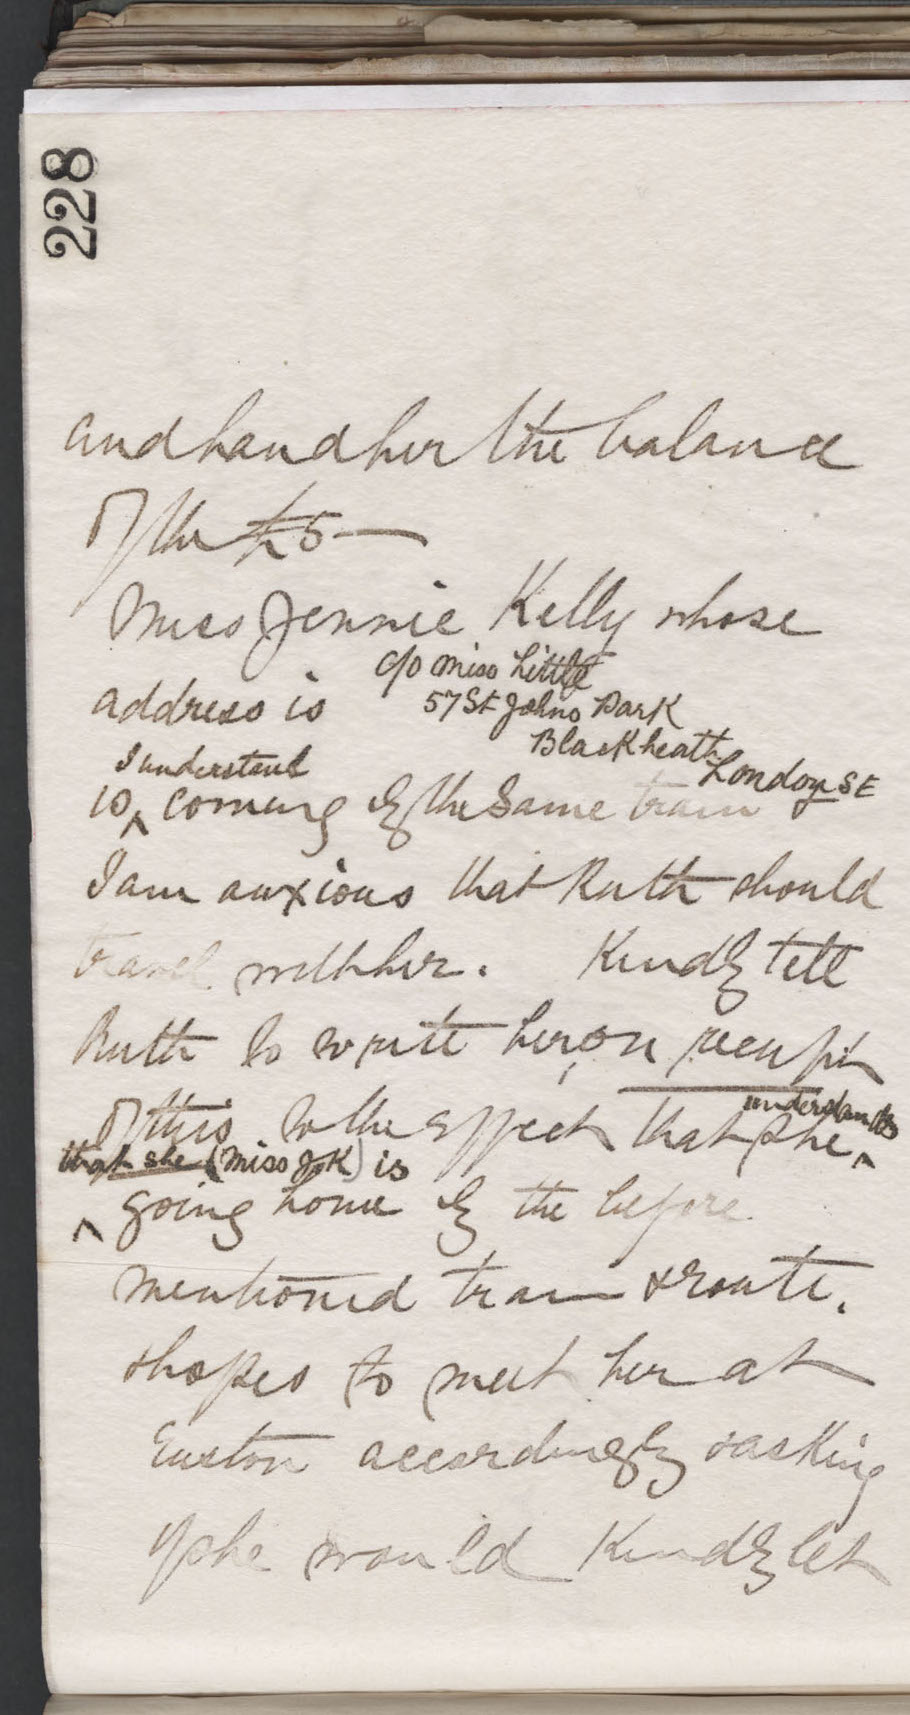 228
and hand her the balance
of the £5 —
Miss Jennie Kelly whose
c/o Miss Little
address is 57 St Johns Park
Blackheath
London SE
I understand
is ^ coming by the same train
I am anxious that Ruth should
travel with her. Kindly tell
Ruth to write her, on receipt
of this to the effect that she ^
understands
that she (Miss J K) is
^ going home by the before
mentioned train & route.
& hopes to meet her at
Euston accordingly & asking
if she would kindly let